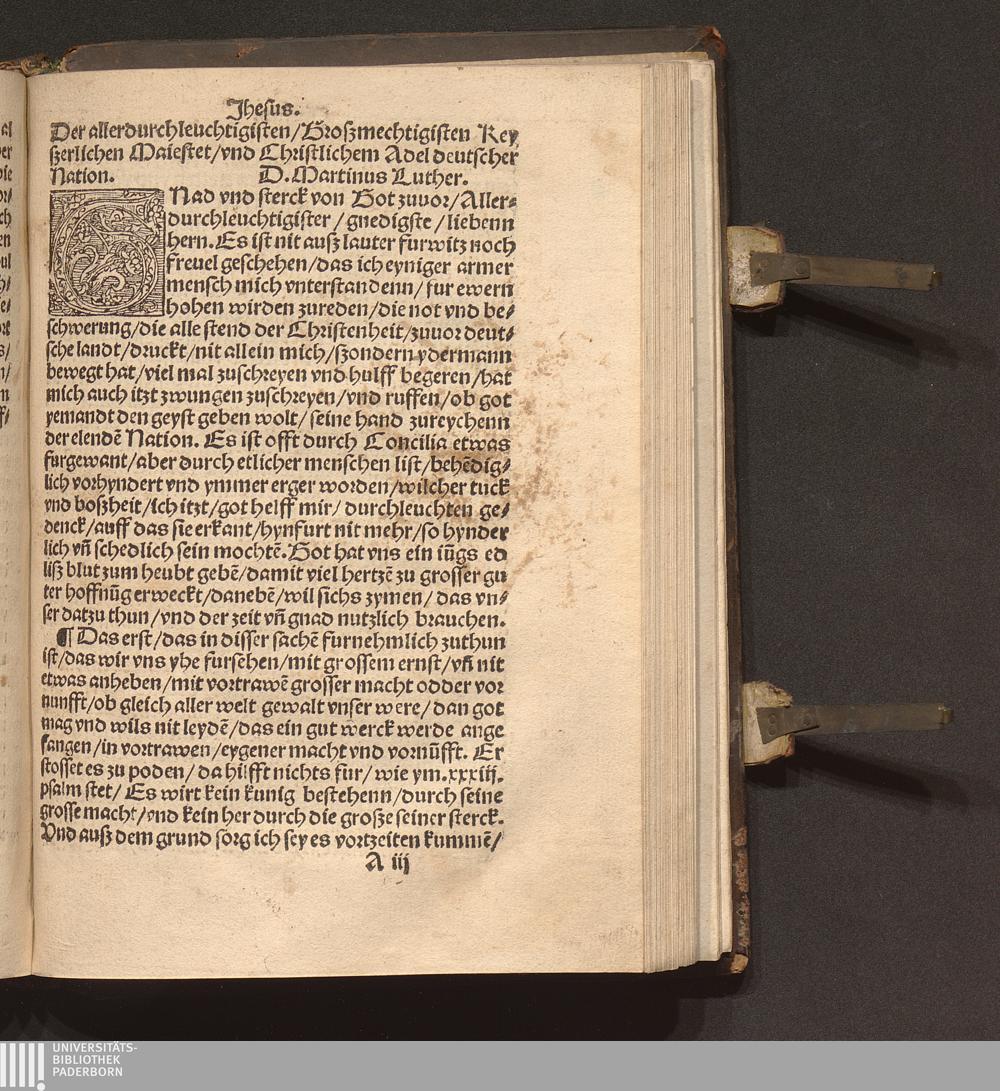 Jhesus.
Der allerdurchleuchtigisten/Großmechtigisten Key
ßerlichen Maiestet/vnd Christlichem Adel deutscher
Nation. D. Martinus Luther.
GNad vnd sterck von Got zuuor/Aller⸗
durchleuchtigister/gnedigste/liebenn
hern. Es ist nit auß lauter furwitz noch
freuel geschehen/das ich eyniger armer
mensch mich vnterstandenn/fur ewern
hohen wirden zureden/die not vnd be⸗
schwerung/die alle stend der Christenheit/zuuor deut⸗
sche landt/druckt/nit allein mich/ßondern ydermann
bewegt hat/viel mal zuschreyen vnd hulff begeren/hat
mich auch itzt zwungen zuschreyen/vnd ruffen/ob got
yemandt den geyst geben wolt/seine hand zureychenn
der elendē Nation. Es ist offt durch Concilia etwas
furgewant/aber durch etlicher menschen list/behēdig⸗
lich vorhyndert vnd ymmer erger worden/wilcher tuck
vnd boßheit/ich itzt/got helff mir/durchleuchten ge⸗
denck/auff das sie erkant/hynfurt nit mehr/so hynder
lich vn̄ schedlich sein mochtē. Got hat vns ein iūgs ed
liß blut zum heubt gebē/damit viel hertzē zu grosser gu
ter hoffnūg erweckt/danebē/wil sichs zymen/das vn⸗
ser datzu thun/vnd der zeit vn̄ gnad nutzlich brauchen.
¶ Das erst/das in disser sachē furnehmlich zuthun
ist/das wir vns yhe fursehen/mit grossem ernst/vn̄ nit
etwas anheben/mit vortrawē grosser macht odder vor
nunfft/ob gleich aller welt gewalt vnser were/dan got
mag vnd wils nit leydē/das ein gut werck werde ange
fangen/in vortrawen/eygener macht vnd vornūfft. Er
stosset es zu poden/da hilfft nichts fur/wie ym.xxxiij.
psalm stet/Es wirt kein kunig bestehenn/durch seine
grosse macht/vnd kein her durch die große seiner sterck.
Vnd auß dem grund sorg ich sey es vortzeiten kummē/
A iij
UNIVERSITÄTS-
BIBLIOTHEK
PADERBORN